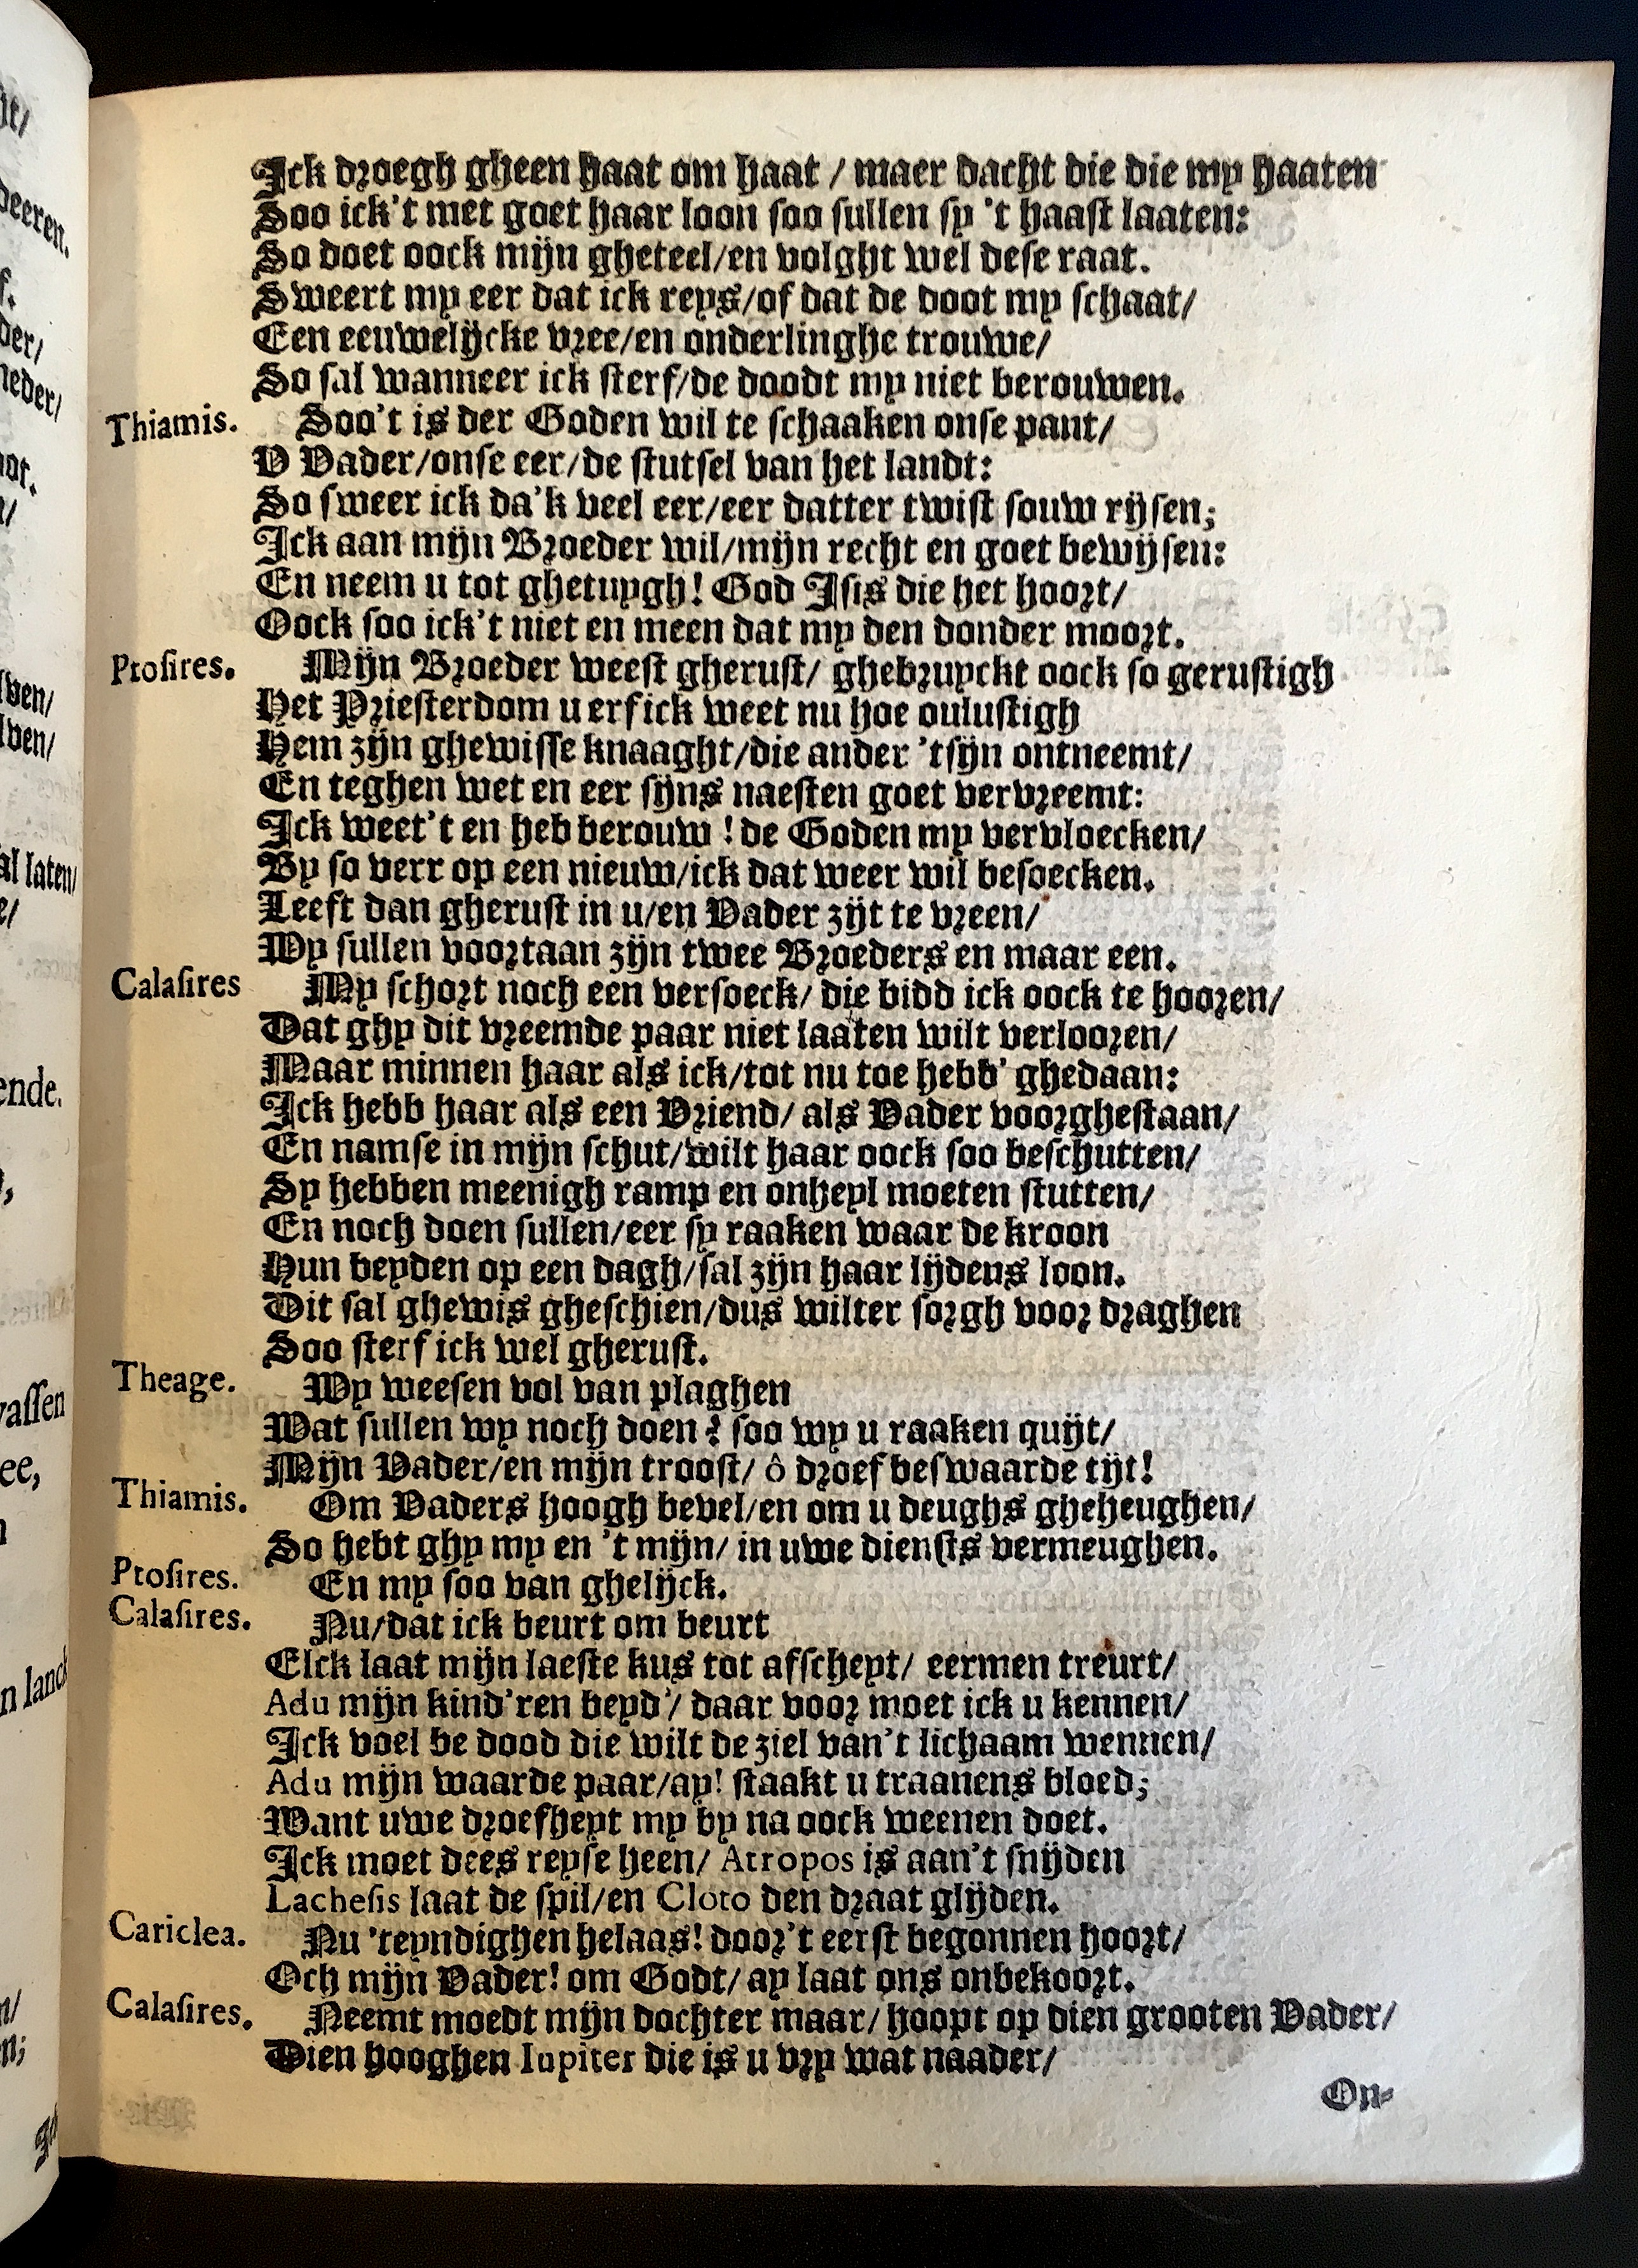 Ick droegh gheen haat om haat / maer dacht die die my haaten
Soo ick't met goet haar loon soo sullen sy 't haast laaten:
So doet oock mijn gheteel/en volght wel dese raat.
Sweert my eer dat ick reys/of dat de doot my schaat/
Een eeuwelijcke vree/en onderlinghe trouwe/
So sal wanneer ick sterf/de doodt my niet berouwen.
Thiamis. Soo't is der Goden wil te schaaken onse pant/
O Vader/onse eer/de stutsel van het landt:
So sweer ick da'k veel eer/eer datter twist souw rijsen;
Ick aan mijn Broeder wil/mijn recht en goet bewijsen:
En neem u tot ghetuygh! God Isis die het hoort/
Oock soo ick't niet en meen dat my den donder moort.
Ptosires. Mijn Broeder weest gherust/ ghebruyckt oock so gerustigh
Het Priesterdom u erf ick weet nu hoe oulustigh
Hem zijn ghewisse knaaght/die ander 'tsijn ontneemt/
En teghen wet en eer sijns naesten goet vervreemt:
Ick weet't en heb berouw ! de Goden my vervloecken/
By so verr op een nieuw/ick dat weer wil besoecken.
Leeft dan gherust in u/en Vader zijt te vreen/
Wy sullen voortaan zijn twee Broeders en maar een.
Calasires My schort noch een versoeck/ die bidd ick oock te hooren/
Dat ghy dit vreemde paar niet laaten wilt verlooren/
Maar minnen haar als ick/tot nu toe hebb' ghedaan:
Ick hebb haar als een Vriend/ als Vader voorghestaan/
En namse in mijn schut/wilt haar oock soo beschutten/
Sy hebben meenigh ramp en onheyl moeten stutten/
En noch doen sullen/eer sy raaken waar de kroon
Hun beyden op een dagh/sal zijn haar lijdens loon.
Dit sal ghewis gheschien/dus wilter sorgh voor draghen
Soo sterf ick wel gherust.
Theage. Wy weesen vol van plaghen
Wat sullen wy noch doen? soo wy u raaken quijt/
Mijn Vader/en mijn troost/ ô droef beswaarde tijt!
Thiamis. Om Vaders hoogh bevel/en om u deughs gheheughen/
So hebt ghy my en 't mijn/ in uwe diensts vermeughen.
Ptosires. En my soo van ghelijck.
Calasires. Nu/dat ick beurt om beurt
Elck laat mijn laeste kus tot afscheyt/ eermen treurt/
Adu mijn kind'ren beyd'/ daar voor moet ick u kennen/
Ick voel be dood die wilt de ziel van't lichaam wennen/
Adu mijn waarde paar/ay! staakt u traanens bloed;
Want uwe droefheyt my by na oock weenen doet.
Ick moet dees reyse heen/ Atropos is aan't snijden
Lachesis laat de spil/en Cloto den draat glijden.
Cariclea. Nu 'reyndighen helaas! door't eerst begonnen hoort/
Och mijn Vader! om Godt/ ay laat ons onbekoort.
Calasires. Neemt moedt mijn dochter maar/ hoopt op dien grooten Vader/
Dien hooghen Iupiter die is u vry wat naader/
On-